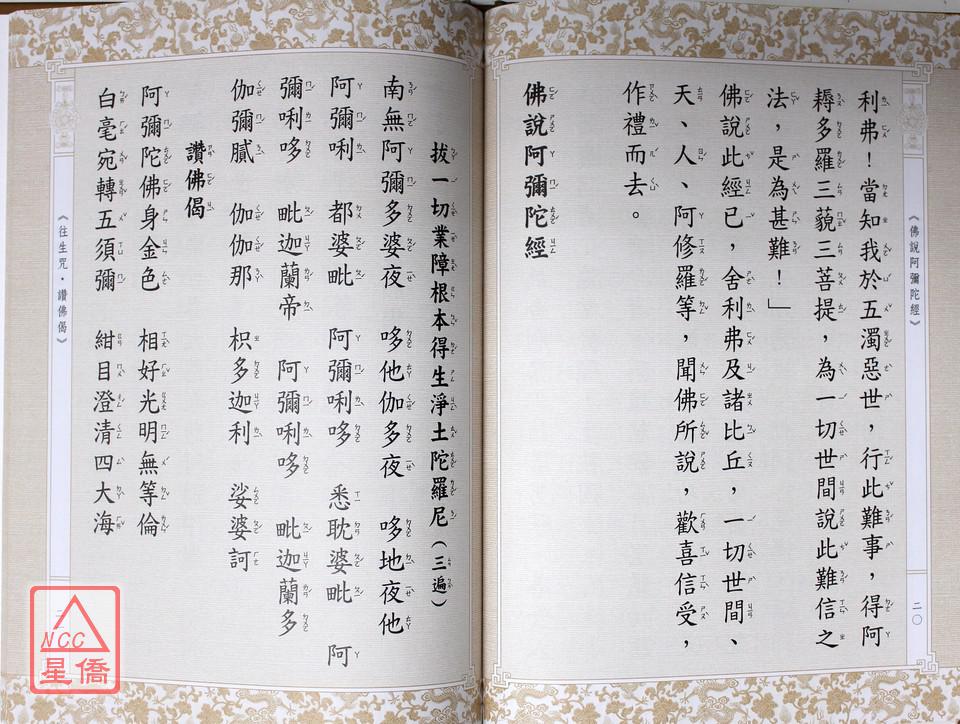 《佛說阿彌陀經》
二〇
利弗！當知我於五濁惡世，行此難事，得阿
耨多羅三藐三菩提，為一切世間說此難信之
法，是為甚難！」
佛說此經已，舍利弗及諸比丘，一切世間、
天、人、阿修羅等，聞佛所說，歡喜信受，
作禮而去。
佛說阿彌陀經
拔一切業障根本得生淨土陀羅尼（三遍）
南無阿彌多婆夜　哆他伽多夜　哆地夜他
阿彌唎　都婆毗　阿彌唎哆　悉耽婆毗　阿
彌唎哆　毗迦蘭帝　阿彌唎哆　毗迦蘭多
伽彌膩　伽伽那　枳多迦利　娑婆訶
讚佛偈
阿彌陀佛身金色　相好光明無等倫
白毫宛轉五須彌　紺目澄清四大海
《往生咒·讚佛偈》
NCC
星僑